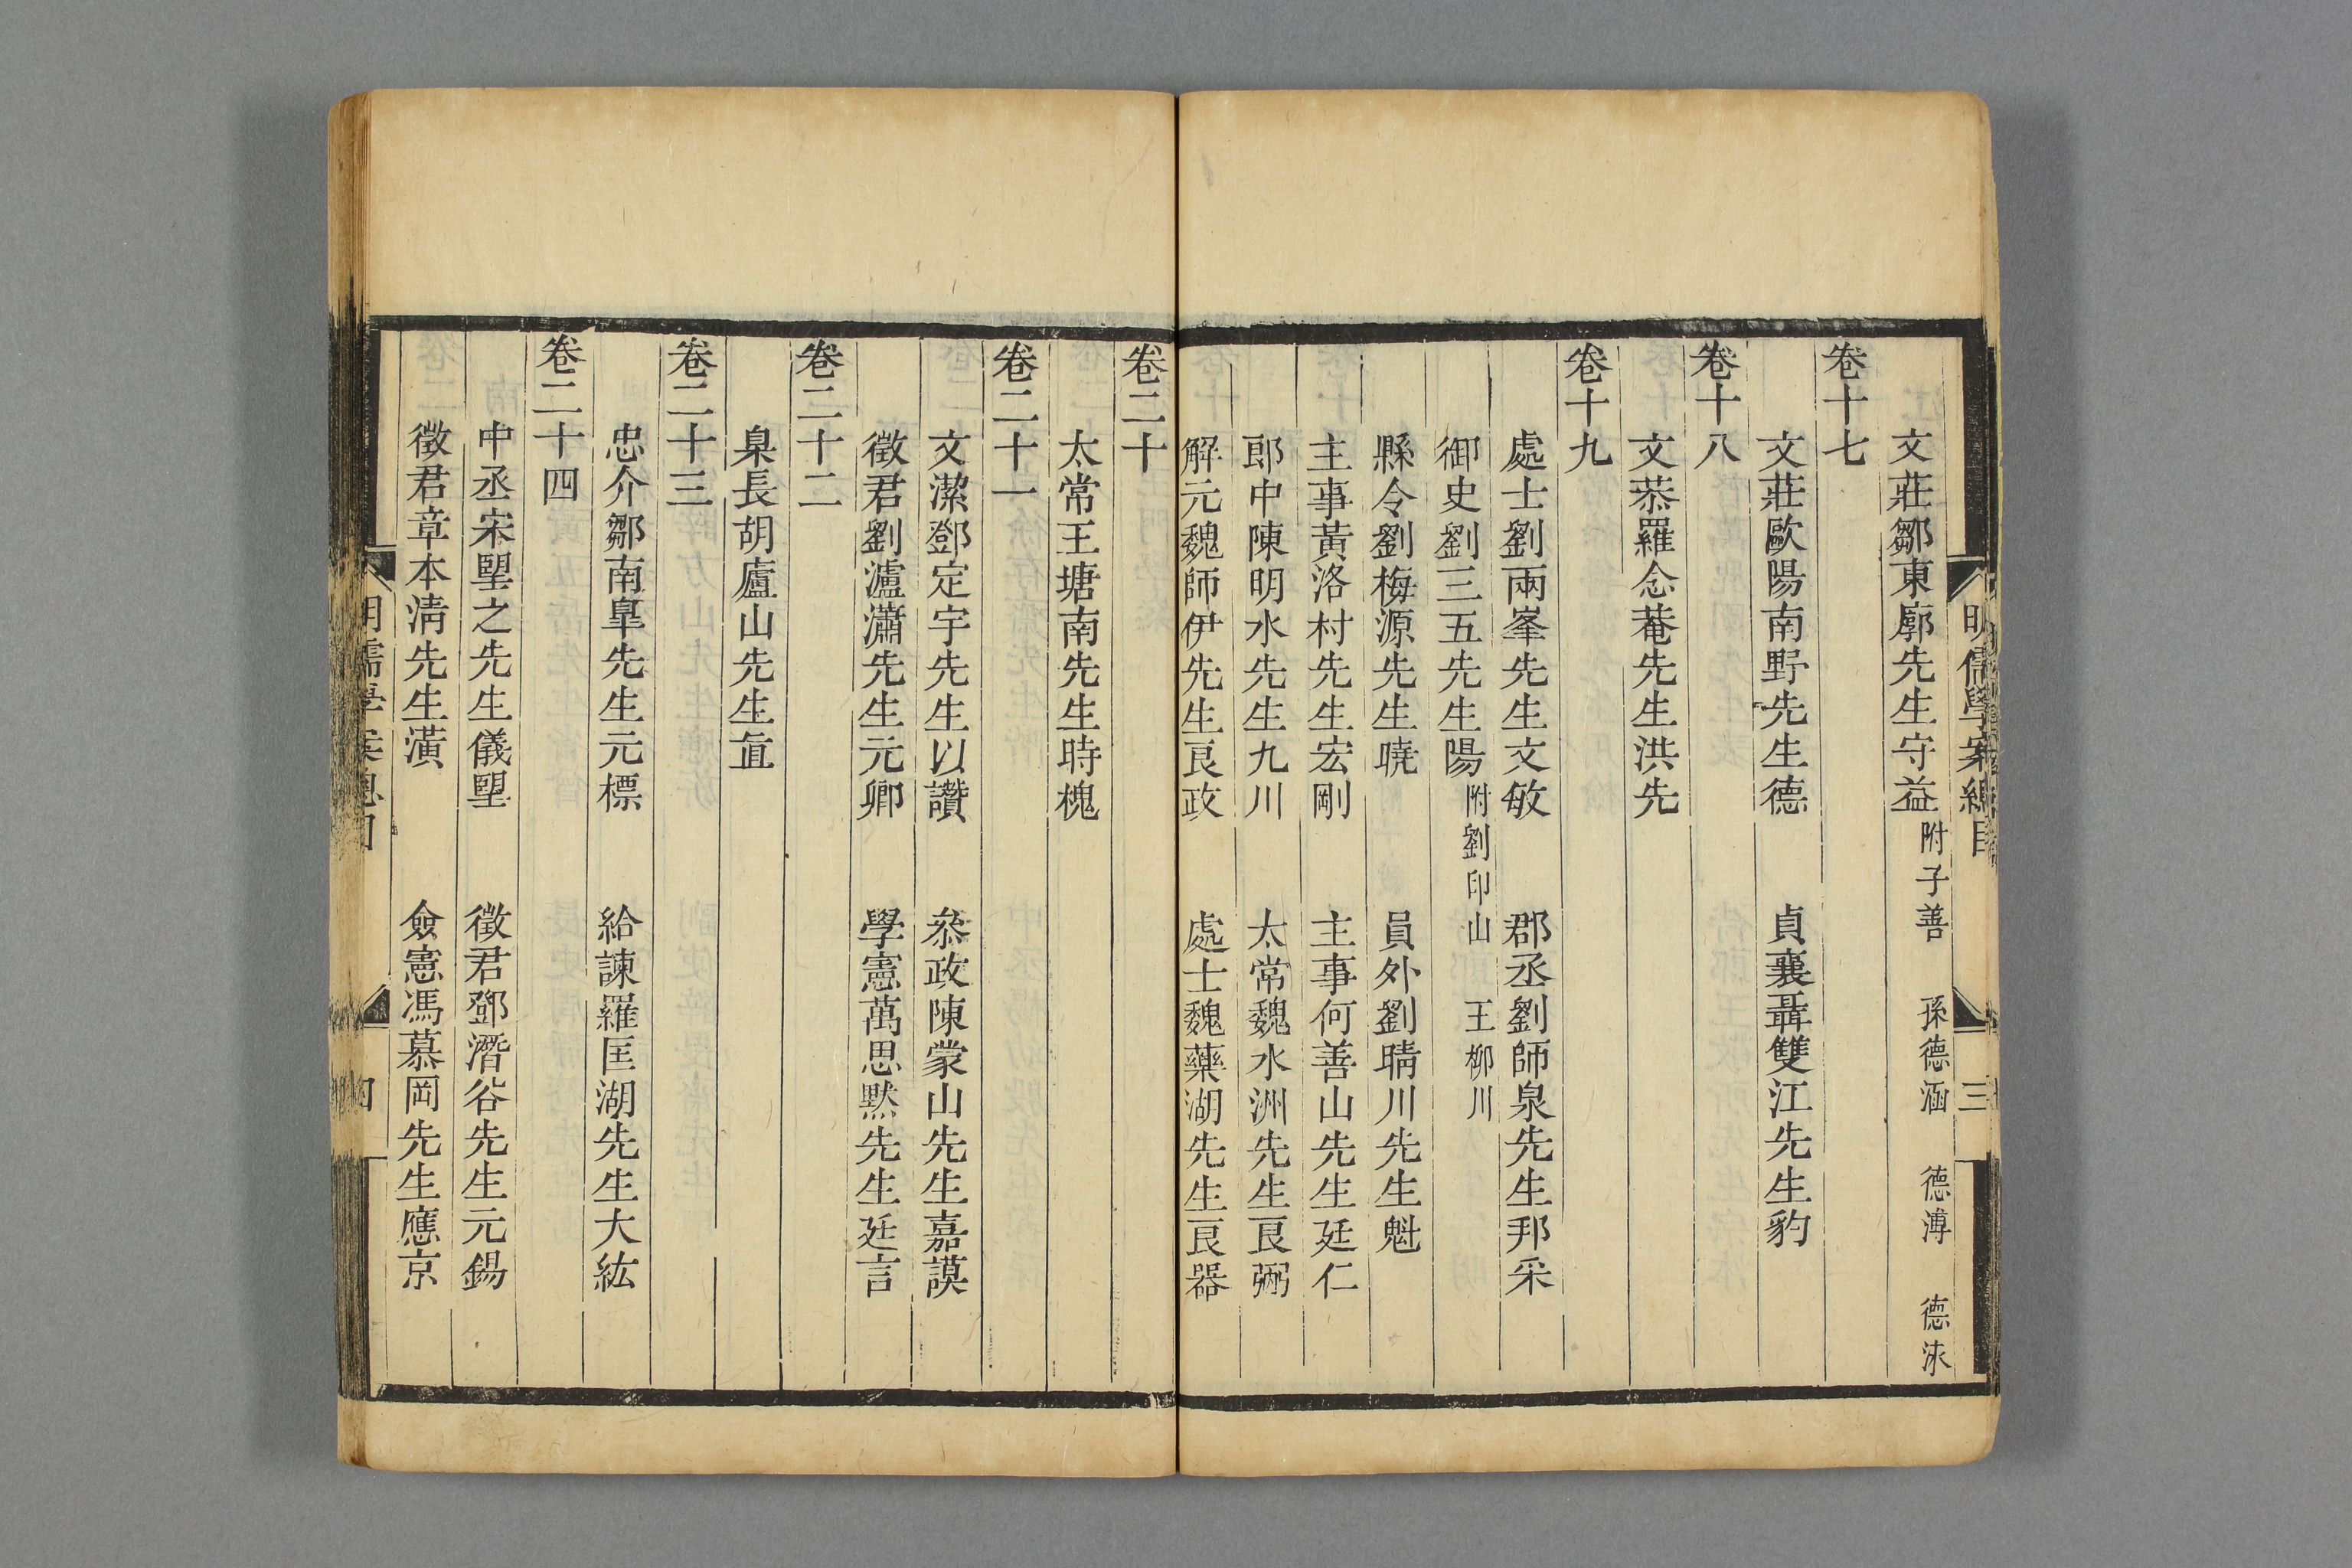 明儒學案總目 三
文莊鄒東廓先生守益 附子善 孫德涵 德溥 德泳
卷十七
文莊歐陽南野先生德 貞襄聶雙江先生豹
卷十八
文恭羅念菴先生洪先
卷十九
處士劉兩峯先生文敏 郡丞劉師泉先生邦采
御史劉三五先生陽 附劉印山 王柳川
縣令劉梅源先生曉 員外劉晴川先生魁
主事黃洛村先生宏剛 主事何善山先生廷仁
郎中陳明水先生九川 太常魏水洲先生良弼
解元魏師伊先生良政 處士魏藥湖先生良器
卷二十
太常王塘南先生時槐
卷二十一
文潔鄧定宇先生以讚 叅政陳蒙山先生嘉謨
徵君劉瀘瀟先生元卿 學憲萬思默先生廷言
卷二十二
臬長胡廬山先生直
卷二十三
忠介鄒南臯先生元標 給諫羅匡湖先生大紘
卷二十四
中丞宋朢之先生儀朢 徵君鄧潛谷先生元錫
徵君章本清先生潢 僉憲馮慕岡先生應京
明儒學案總目 四